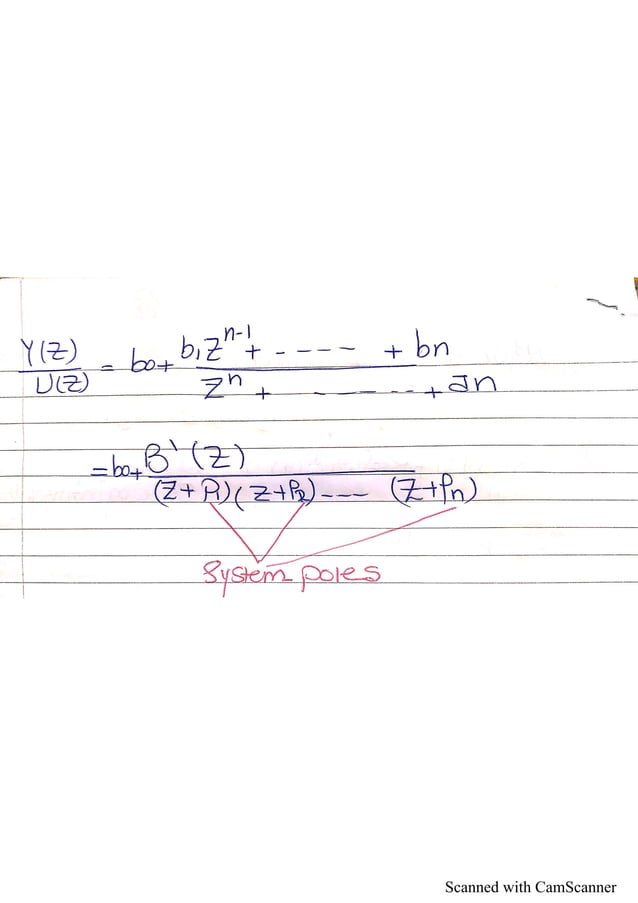 Y(Z)/U(Z) = b0+ (b1Z^n-1 + ---- + bn)/(Z^n + ------ + an)
= b0+ B'(Z)/((Z+P1)(Z+P2)---- (Z+Pn))
System poles
Scanned with CamScanner